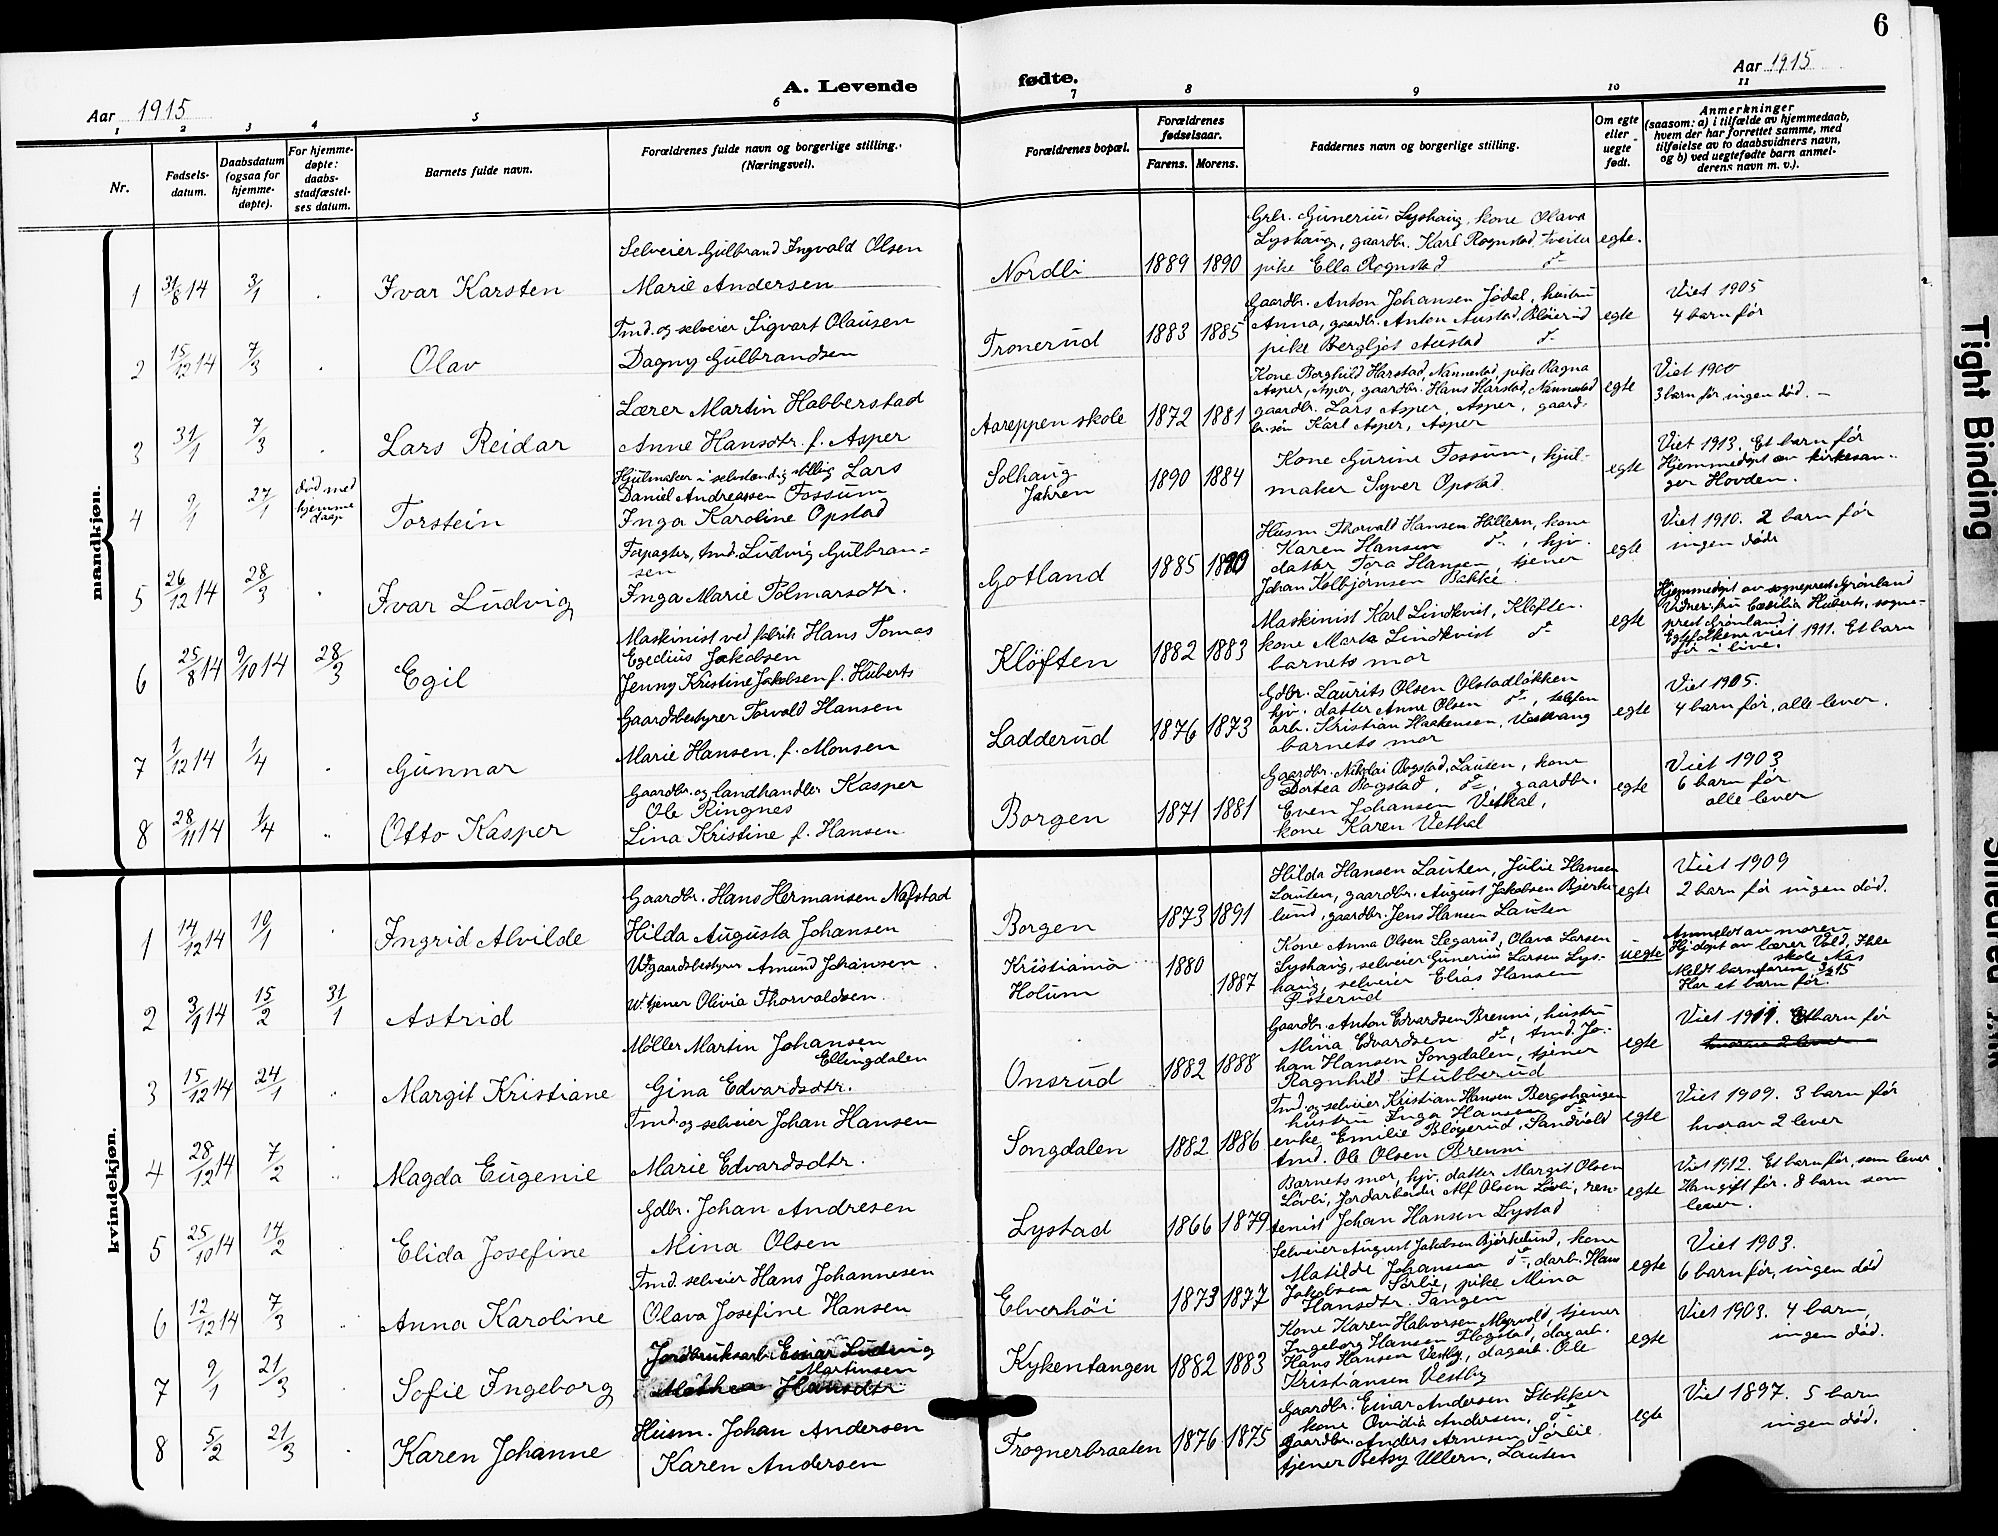 6
A. Levende fødte.
Aar 1915
Aar 1915
1 2 3 4 5 6 7 8 9 10 11
Nr.
Fødsels-
datum.
Daabsdatum
(ogsaa for
hjemme-
døpte).
For hjemme-
døpte:
daabs-
stadfæstel-
ses datum.
Barnets fulde navn.
Forældrenes fulde navn og borgerlige stilling.
(Næringsvei).
Forældrenes bopæl.
Forældrenes
fødselsaar.
Farens. Morens.
Faddernes navn og borgerlige stilling.
Om egte
eller
uegte
født.
Anmerkninger
(saasom: a) i tilfælde av hjemmedaab,
hvem der har forrettet samme, med
tilføielse av to daabsvidners navn,
og b) ved uegtefødte barn anmel-
derens navn m. v.).
mandkjøn.
1 31/8 14 3/1 Ivar Karsten
Selveier Gulbrand Ingvald Olsen
Marie Andersen
Nordli 1889 1890
Grbr. Gunerius Lyshaug, kone Olava
Lyshaug, gaardbr. Karl Rognstad, Tveiter
pike Ella Rognstad do
egte.
2 15/12 14 7/3 Olav
Tmd. og selveier Sigvart Olausen
Dagny Gulbrandsen
Tronerud 1883 1885
Gaardbr. Anton Johansen Jødal, hustru
Anna, gaardbr. Anton Austad, Bløierud
pike Bergljot Austad do
egte
Viet 1905
4 barn før
3 31/1 7/3 Lars Reidar
Lærer Martin Habberstad
Anne Hansdtr. f. Asper
Aareppen skole 1872 1881
Kone Borghild Harstad, Nannestad, pike Ragna
Asper, Asper, gaardbr. Hans Harstad, Nannestad
gaardbr. Lars Asper, Asper, gaard-
br.søn Karl Asper, Asper
egte
Viet 1900
3 barn før ingen død. –
4 9/1 27/1 død med
hjemme
daap
Torstein
Hjulmaker i selvstændig stilling Lars
Daniel Andreassen Fossum
Inga Karoline Opstad
Solhaug
Jahren
1890 1884
Kone Gurine Fossum, hjul-
maker Syver Opstad.
egte
Viet 1913. Et barn før
Hjemmedøpt av kirkesan-
ger Hovden.
5 26/12 14 28/3 Ivar Ludvig
Forpagter, tmd. Ludvig Gulbran-
sen
Inga Marie Tolmarsdtr.
Gotland 1885 1890
Husm. Thorvald Hansen Hillern, kone
Karen Hansen do, hjv.
datter Tora Hansen, tjener
Johan Kolbjørnsen Bakke
egte
Viet 1910. 2 barn før
ingen døde
6 25/8 14 9/10 14 28/3 Egil
Maskinist ved fabrik Hans Tomas
Egedius Jakobsen
Jenny Kristine Jakobsen f. Huberts
Kløften 1882 1883
Maskinist Karl Lindkvist, Kløften.
kone Marta Lindkvist do
barnets mor
egte
Hjemmedøpt av sogneprest Grønland
Vidner: fru Cæsilia Huberts, sogne-
prest Grønland
Egtefolkene viet 1911. Et barn
før i live.
7 1/12 14 1/4 Gunnar
Gaardsbestyrer Torvald Hansen
Marie Hansen. f. Monsen
Ladderud 1876 1873
Gdbr. Laurits Olsen Olstadløkken
hjv. datter Anne Olsen do, telefon
arb. Kristian Haakensen, Vestvang
barnets mor
egte
Viet 1905.
4 barn før, alle lever.
8 28/11 14 1/4 Otto Kasper
Gaardbr. og landhandler Kasper
Ole Ringnes
Lina Kristine f. Hansen
Borgen 1871 1881
Gaardbr. Nikolai Bogstad, Lauten, kone
Dortea Bogstad, do, gaardbr.
Even Johansen Vethal,
kone Karen Vethal
egte
Viet 1903
6 barn før
alle lever
kvindekjøn.
1 14/12 14 10/1 Ingrid Alvilde
Gaardbr. Hans Hermansen Nafstad
Hilda Augusta Johansen
Borgen 1873 1891
Hilda Hansen Lauten, Julie Hansen
Lauten, gaardbr. August Jakobsen Bjerke-
lund, gaardbr. Jens Hansen Lauten
egte
Viet 1909
2 barn før ingen død.
2 3/1 14 15/2 31/1 Astrid
U. gaardsbestyrer Amund Johansen
U. tjener Olivia Thorvaldsen.
Kristiania
Holum
1880
1887
Kone Anna Olsen Segarud, Olava Larsen
Lyshaug, selveier Gunerius Larsen Lys-
haug, selveier Elias Hansen
Østerud
uegte
Anmeldt av moren
Hj. døpt av lærer Vold,
skole Næs
Meldt barnefaren 3/2 15
Har et barn før.
3 15/12 14 24/1 Margit Kristiane
Møller Martin Johansen
Ellingdalen
Gina Edvardsdtr.
Onsrud 1882 1888
Gaardbr. Anton Edvardsen Brenni, hustru
Mina Edvardsen do, tmd. Jo-
han Hansen Songdalen, tjener
Ragnhild Stubberud
egte
Viet 1911. Et barn før
hvorav 2 lever
4 28/12 14 7/2 Magda Eugenie
Tmd. og selveier Johan Hansen
Marie Edvardsdtr.
Songdalen 1882 1886
Tmd. og selveier Kristian Hansen Bergshaugen
hustru Inga Hansen do
enke Emilie Bløyerud, Sandvold
tmd. Ole Olsen Brenni
egte
Viet 1909. 3 barn før
hvorav 2 lever
5 25/10 14 14/2 Elida Josefine
Gdbr. Johan Andresen
Mina Olsen
Lystad 1866 1879
Barnets mor, hjv. datter Margit Olsen
Løvli, Jordarbeider Alf Olsen Løvli, ren-
tenist Johan Hansen Lystad
egte
Viet 1912. Et barn før, som lever
Han gift før. 8 barn som
lever.
6 12/12 14 7/3 Anna Karoline
Tmd. selveier Hans Johannesen
Olava Josefine Hansen
Elverhöi 1873 1877
Selveier August Jakobsen Bjørkelund, kone
Matilde Johansen do, darb. Hans
Jakobsen Sørlie, pike Mina
Hansdtr. Tangen
egte
Viet 1903.
6 barn før, ingen død
7 9/1 21/3 Sofie Ingeborg
Jordbruksarb. Einar Ludvig
Martinsen
Mathea Hansdtr
Kykentangen 1882 1883
Kone Karen Halvorsen Myrvold, tjener
Ingeborg Hansen Flogstad, dagarb.
Hans Hansen Vestby, dagarb. Ole
Kristiansen Vestby
egte
Viet 1903. 4 barn,
ingen død.
8 5/2 21/3 Karen Johanne
Husm. Johan Andersen
Karen Andersen
Trognerbraaten 1876 1875
Gaardbr. Einar Andersen Stokker
kone Ovidia Andersen, do
gaardbr. Anders Arnesen Sørlie
tjener Betsy Ullern, Lauten
egte
Viet 1897. 5 barn
ingen død.
Tight Binding